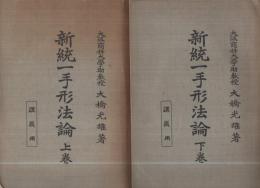 大阪商科大学助教授 大橋光雄著
新統一手形法論 上巻
講義用
大阪商科大学助教授 大橋光雄著
新統一手形法論 下巻
講義用